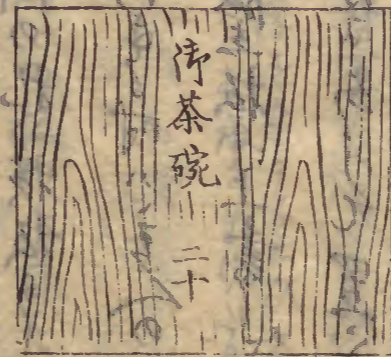 御茶碗 二十